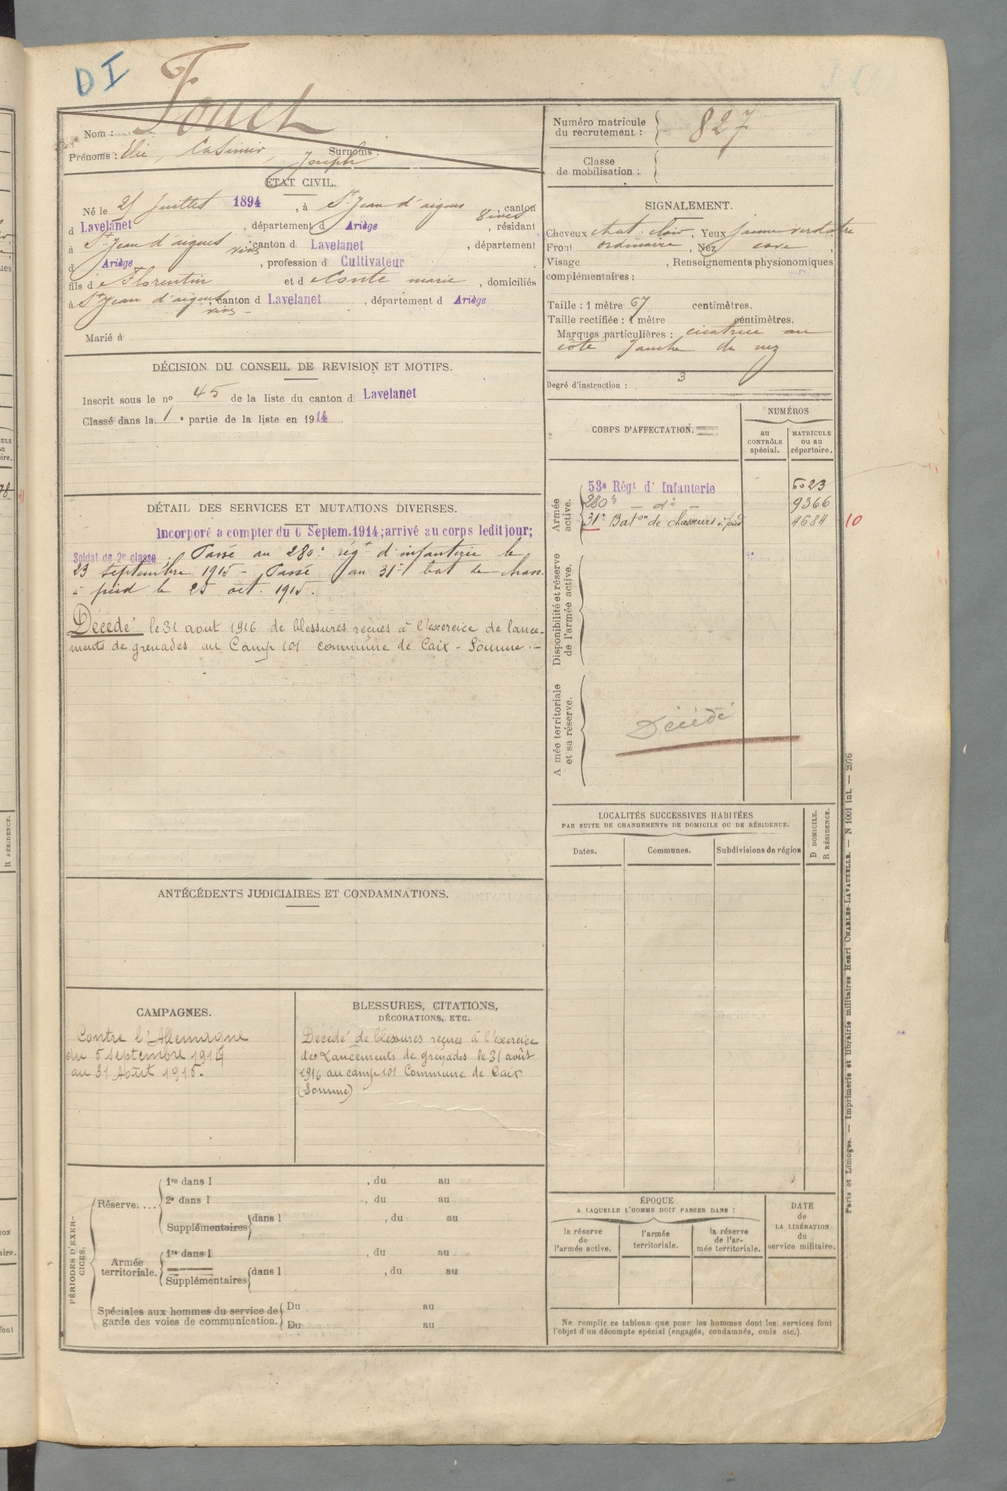 DI
Nom : Fouch
Prénoms : Elie, Casimir, Joseph Surnoms :
ÉTAT CIVIL.
Né le 21 juillet 1894, à St Jean d'aigues vives, canton
d Lavelanet, département d Ariège, résidant
à St Jean d'aigues vives, canton d Lavelanet, département
d Ariège, profession d Cultivateur
fils d Florentin et d Conte marie, domiciliés
à St Jean d'aigues vives canton d Lavelanet, département d Ariège
Marié à
DÉCISION DU CONSEIL DE REVISION ET MOTIFS.
Inscrit sous le nº 45 de la liste du canton d Lavelanet
Classé dans la 1e partie de la liste en 1914
DÉTAIL DES SERVICES ET MUTATIONS DIVERSES.
Incorporé a compter du 6 Septem. 1914; arrivé au corps ledit jour;
Soldat de 2e classe. Passé au 280e rég. d'infanterie le
23 septembre 1915 - Passé au 31e bat de chass.
à pied le 25 oct. 1915.
Décédé le 31 aout 1916 de blessures reçues à l'exercice de lance-
ments de grenades au Camp 101 commune de Caix - Somme.-
ANTÉCÉDENTS JUDICIAIRES ET CONDAMNATIONS.
CAMPAGNES.
Contre l'Allemagne
du 5 septembre 1914
au 31 Août 1915.
BLESSURES, CITATIONS,
DÉCORATIONS, ETC.
Décédé de blessures reçues à l'exercice
de Lancements de grenades le 31 août
1916 au camp 101 Commune de Caix
(Somme)
PÉRIODES D'EXER-
CICES.
Réserve....
1re dans l , du au
2e dans l , du au
Supplémentaires dans l , du au
Armée
territoriale.
1re dans l , du au
Supplémentaires dans l , du au
Spéciales aux hommes du service de
garde des voies de communication.
Du au
Du au
Numéro matricule
du recrutement : 827
Classe
de mobilisation :
SIGNALEMENT.
Cheveux chat. clair, Yeux jaune verdatre
Front ordinaire, Nez cave,
Visage , Renseignements physionomiques
complémentaires :
Taille : 1 mètre 67 centimètres.
Taille rectifiée : 1 mètre centimètres.
Marques particulières : cicatrice au
côté gauche du nez
Degré d'instruction : 3
CORPS D'AFFECTATION.
NUMÉROS
AU
CONTRÔLE
spécial.
MATRICULE
OU AU
répertoire.
Armée
active.
53e Régt d'Infanterie 5023
280e - do - 9366
31e Baton de chasseurs à pied 4684 10
Disponibilité et réserve
de l'armée active.
Armée territoriale
et sa réserve.
Décédé
LOCALITÉS SUCCESSIVES HABITÉES
PAR SUITE DE CHANGEMENTS DE DOMICILE OU DE RÉSIDENCE.
Dates.
Communes.
Subdivisions de région
D DOMICILE.
R RÉSIDENCE.
ÉPOQUE
A LAQUELLE L'HOMME DOIT PASSER DANS :
la réserve
de
l'armée active.
l'armée
territoriale.
la réserve
de l'ar-
mée territoriale.
DATE
de
LA LIBÉRATION
du
service militaire.
Ne remplir ce tableau que pour les hommes dont les services font
l'objet d'un décompte spécial (engagés, condamnés, omis etc.).
Paris et Limoges. — Imprimerie et librairie militaires Henri CHARLES-LAVAUZELLE. — N 1001 int. — 2076
R RÉSIDENCE.